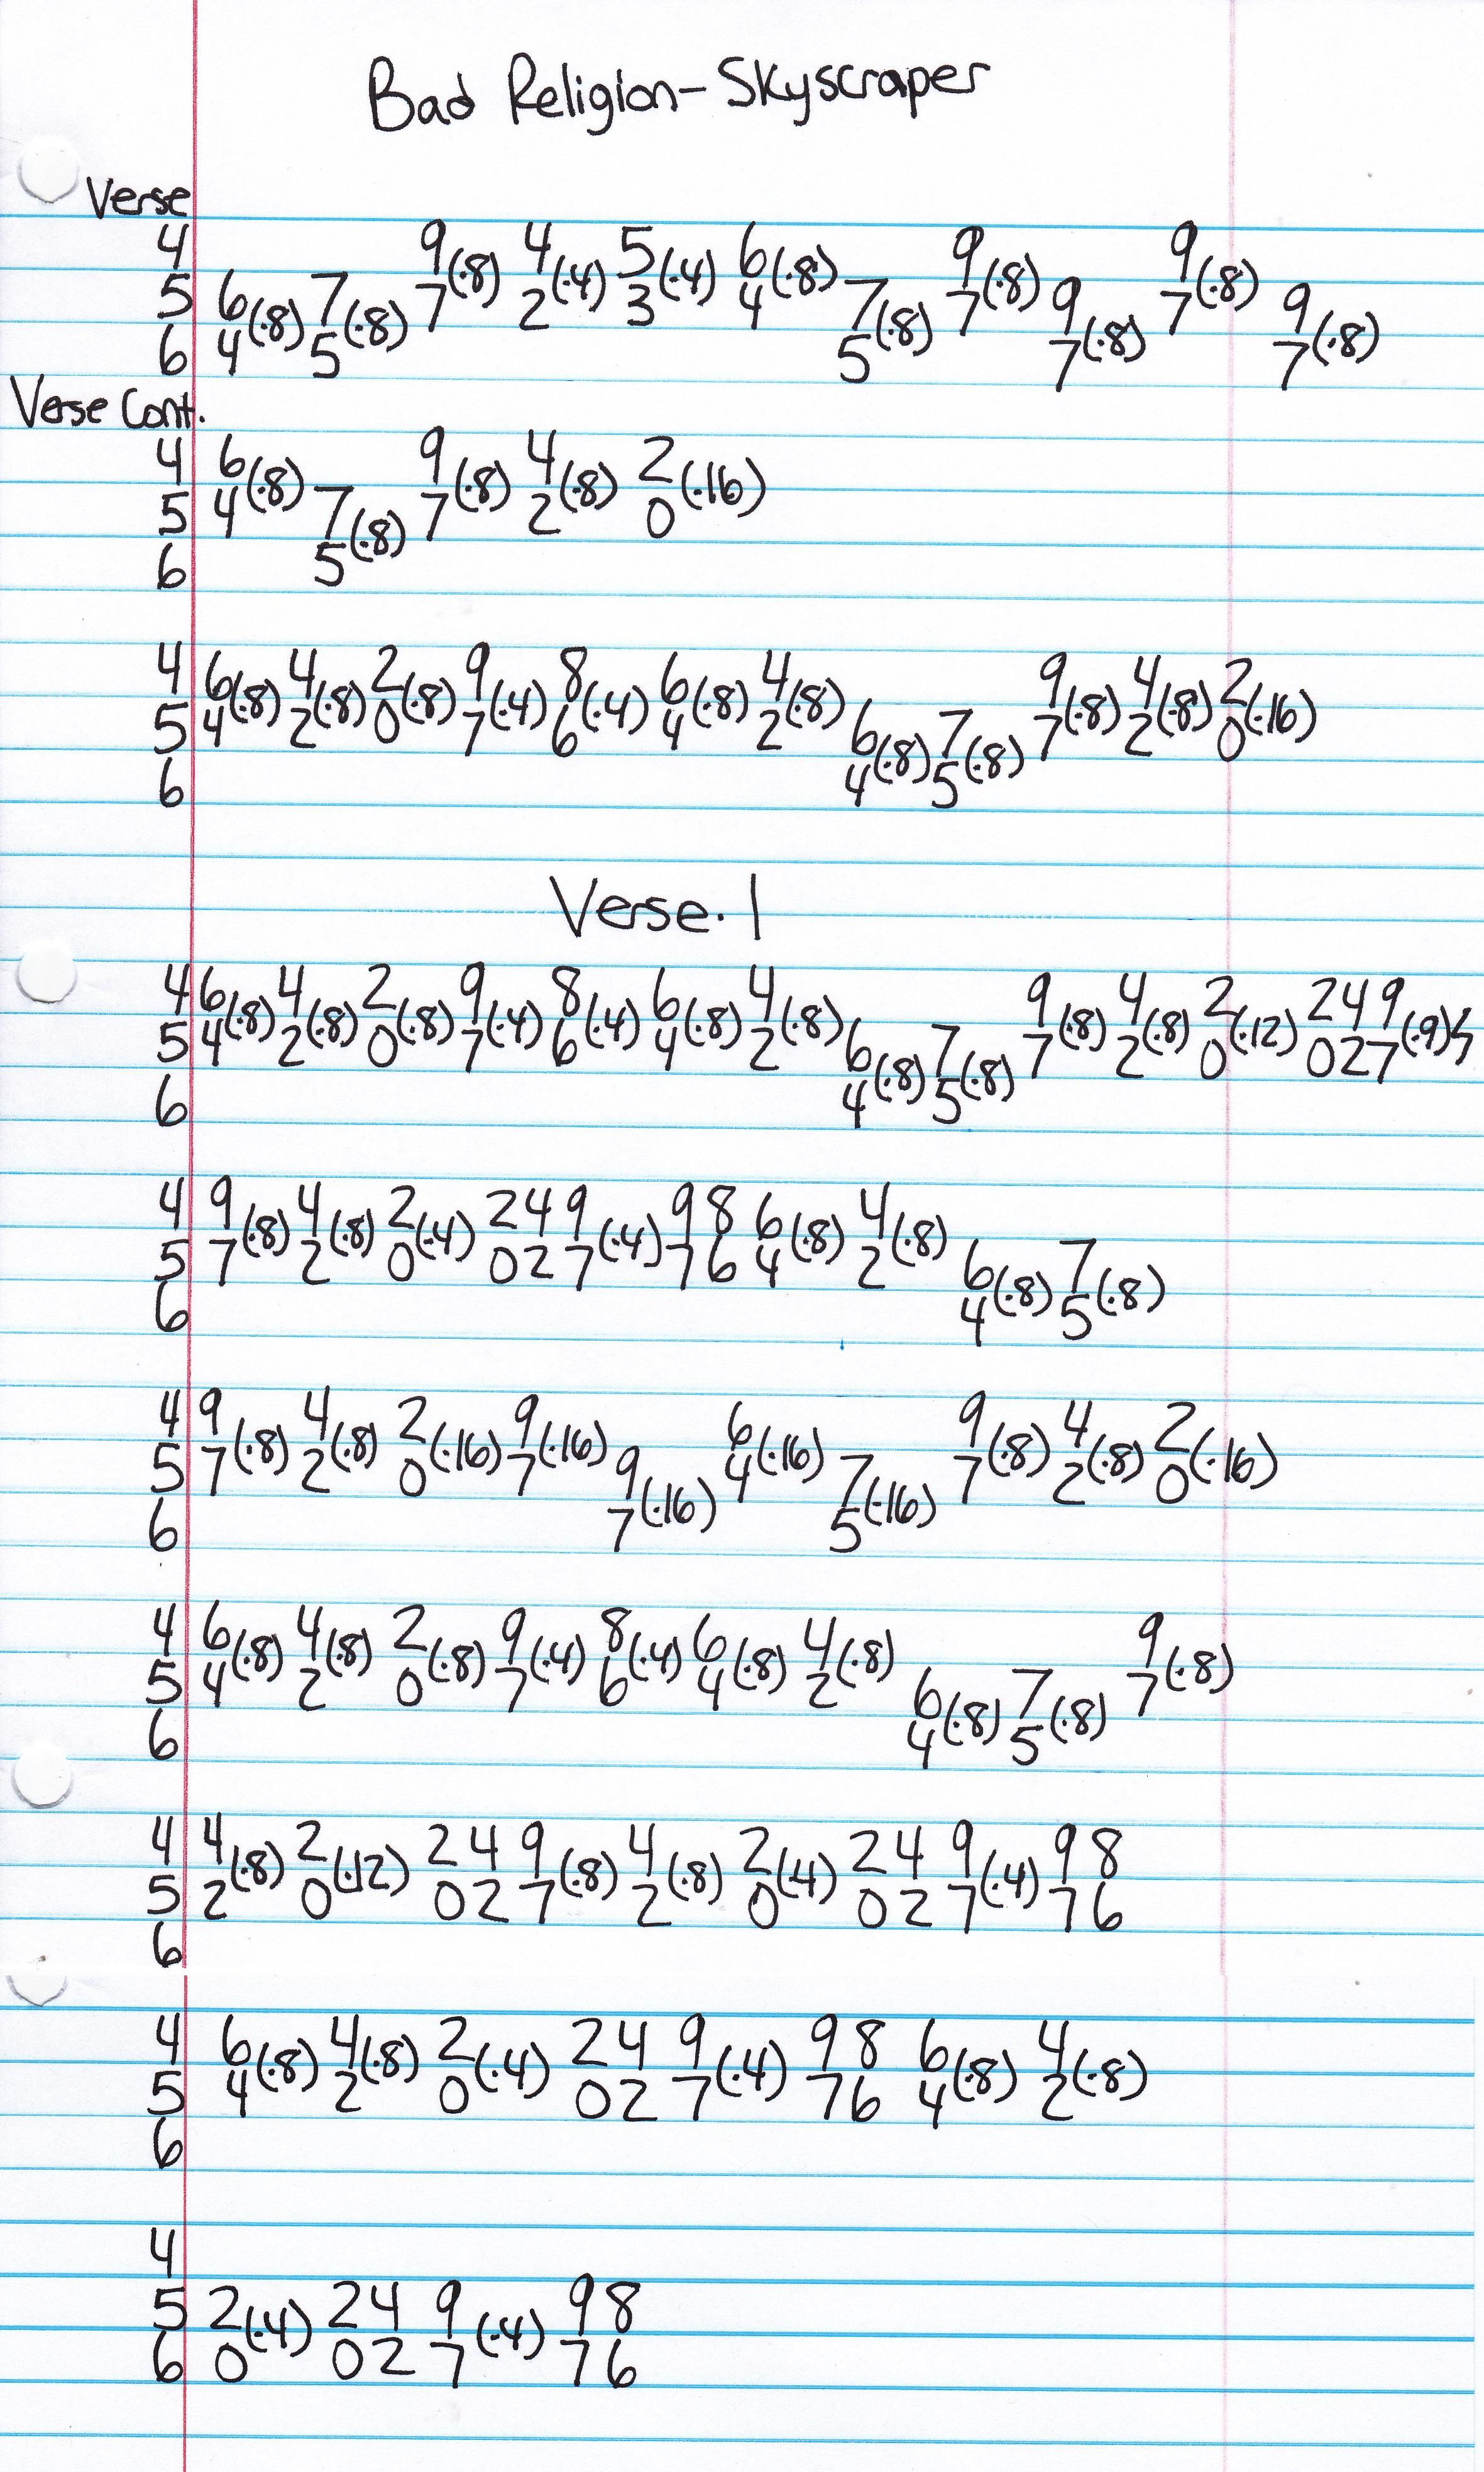 Bad Religion - Skyscraper
Verse
4 9(.8) 4(.4) 5(.4) 6(.8) 9(.8) 9(.8)
5 6(.8) 7(.8) 7 2 3 4 7(.8) 7 9(.8) 7 9(.8)
6 4 5 5 7 7
Verse Cont.
4 6(.8) 9(.8) 4(.8) 2(.16)
5 4 7(.8) 7 2 0
6 5
4 6(.8) 4(.8) 2(.8) 9(.4) 8(.4) 6(.8) 4(.8) 9(.8) 4(.8) 2(.16)
5 4 2 0 7 6 4 2 6(.8) 7(.8) 7 2 0
6 4 5
Verse. 1
4 6(.8) 4(.8) 2(.8) 9(.4) 8(.4) 6(.8) 4(.8) 9(.8) 4(.8) 2(.12) 2 4 9(.9)
5 4 2 0 7 6 4 2 6(.8) 7(.8) 7 2 0 0 2 7
6 4 5
4 9(.8) 4(.8) 2(.4) 2 4 9(.4) 9 8 6(.8) 4(.8)
5 7 2 0 0 2 7 7 6 4 2 6(.8) 7(.8)
6 4 5
4 9(.8) 4(.8) 2(.16) 9(.16) 6(.16) 9(.8) 4(.8) 2(.16)
5 7 2 0 7 9(.16) 4 7(.16) 7 2 0
6 7 5
4 6(.8) 4(.8) 2(.8) 9(.4) 8(.4) 6(.8) 4(.8) 9(.8)
5 4 2 0 7 6 4 2 6(.8) 7(.8) 7
6 4 5
4 4(.8) 2(.12) 2 4 9(.8) 4(.8) 2(.4) 2 4 9(.4) 9 8
5 2 0 0 2 7 2 0 0 2 7 7 6
6
4 6(.8) 4(.8) 2(.4) 2 4 9(.4) 9 8 6(.8) 4(.8)
5 4 2 0 0 2 7 7 6 4 2
6
4
5 2(.4) 2 4 9(.4) 9 8
6 0 0 2 7 7 6